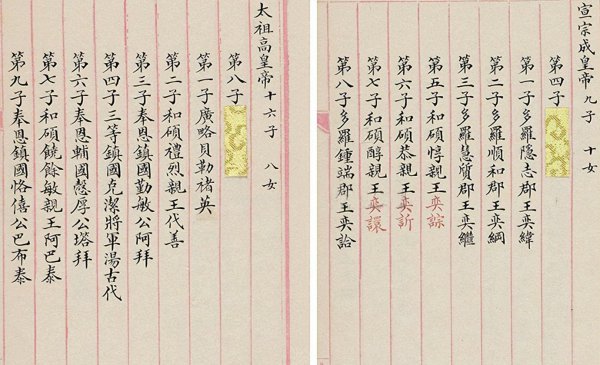 宣宗成皇帝九子 十女
第四子
第一子多羅隱志郡王奕緯
第二子多羅順和郡王奕綱
第三子多羅慧質郡王奕繼
第五子和碩惇親王奕誴
第六子和碩恭親王奕訢
第七子和碩醇親王奕譞
第八子多羅鍾端郡王奕詥
太祖高皇帝十六子 八女
第八子
第一子廣略貝勒褚英
第二子和碩禮烈親王代善
第三子奉恩鎮國勤敏公阿拜
第四子三等鎮國克潔將軍湯古代
第六子奉恩輔國慤厚公塔拜
第七子和碩饒餘敏親王阿巴泰
第九子奉恩鎮國恪僖公巴布泰